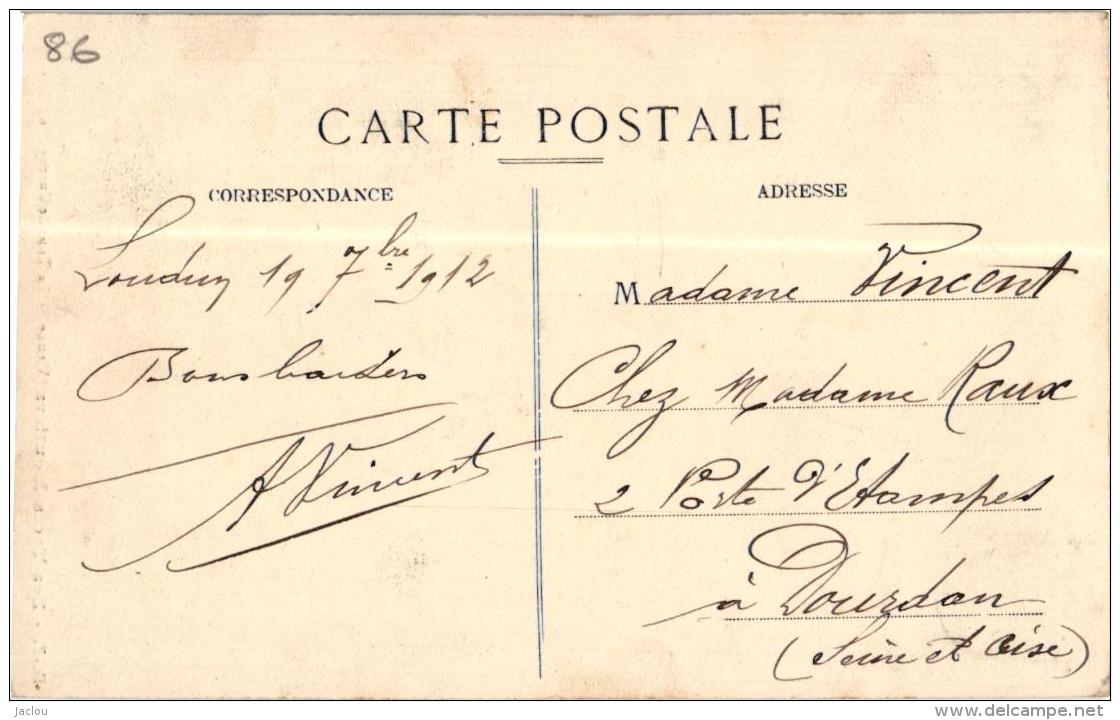 86
CARTE POSTALE
CORRESPONDANCE
Loudun 19 7bre 1912
Bons baisers
A Vincent
ADRESSE
Madame Vincent
Chez Madame Raux
2 Porte d'Etampes
à Dourdan
(Seine et Oise)
jaclou
delcampe.net